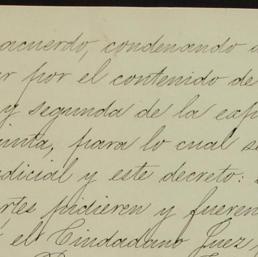 acuerdo, condenando a
ar por el contenido de
y segunda de la exp
uinta, para lo cual se
dicial y este decreto:
artes pidieren y fueren
el Ciudadano Juez,